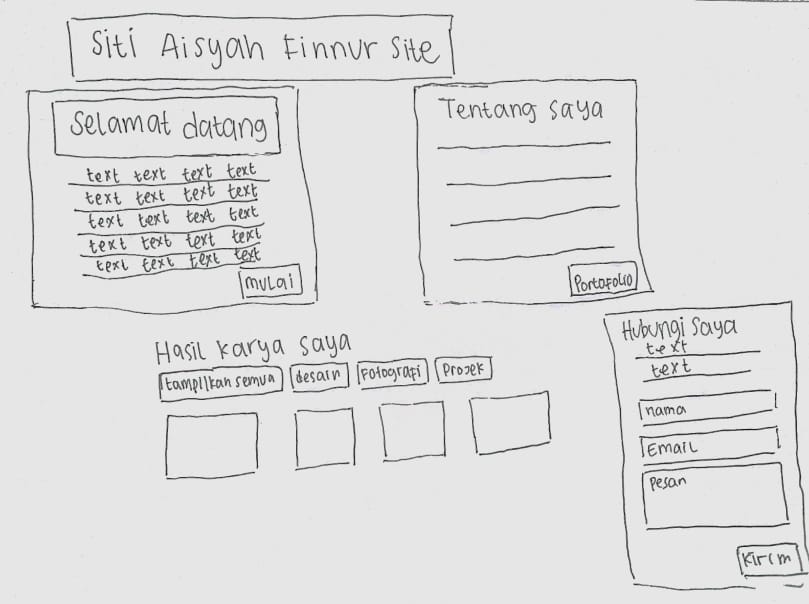 Siti Aisyah Finnur Site
Selamat datang
text text text text
text text text text
text text text text
text text text text
text text text text
mulai
Tentang saya
Portofolio
Hasil karya saya
tampilkan semua
desain
Fotografi
Projek
Hubungi saya
text
text
nama
Email
Pesan
Kirim